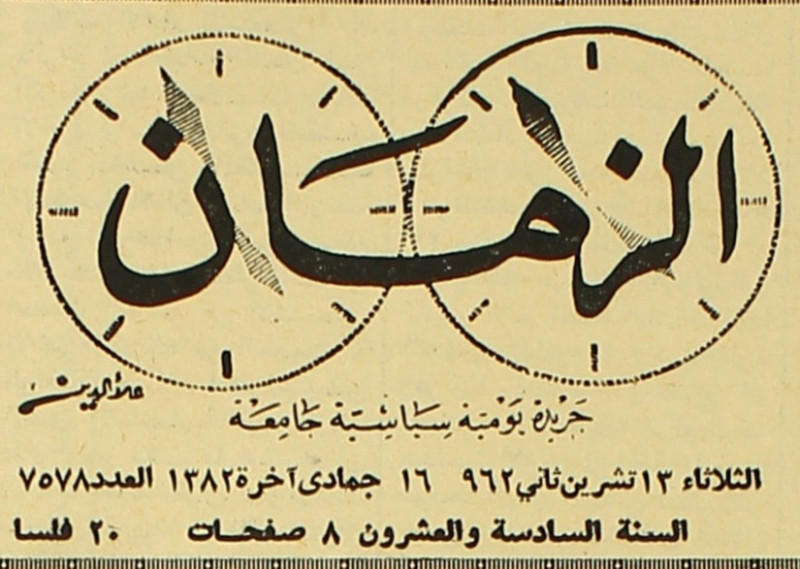 الزمان
علاءالدين
جريدة يومية سياسية جامعة
الثلاثاء ١٣ تشرين ثاني ٩٦٢ ١٦ جمادى آخرة ١٣٨٢ العدد ٧٥٧٨
السنة السادسة والعشرون ٨ صفحات ٢٠ فلسا